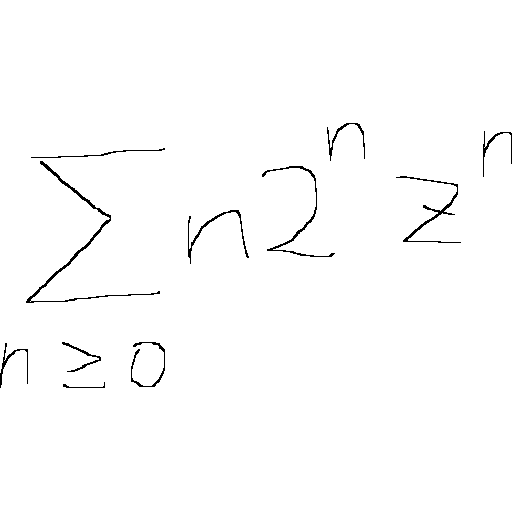 \sum_{n \geq 0} n 2^n z^n